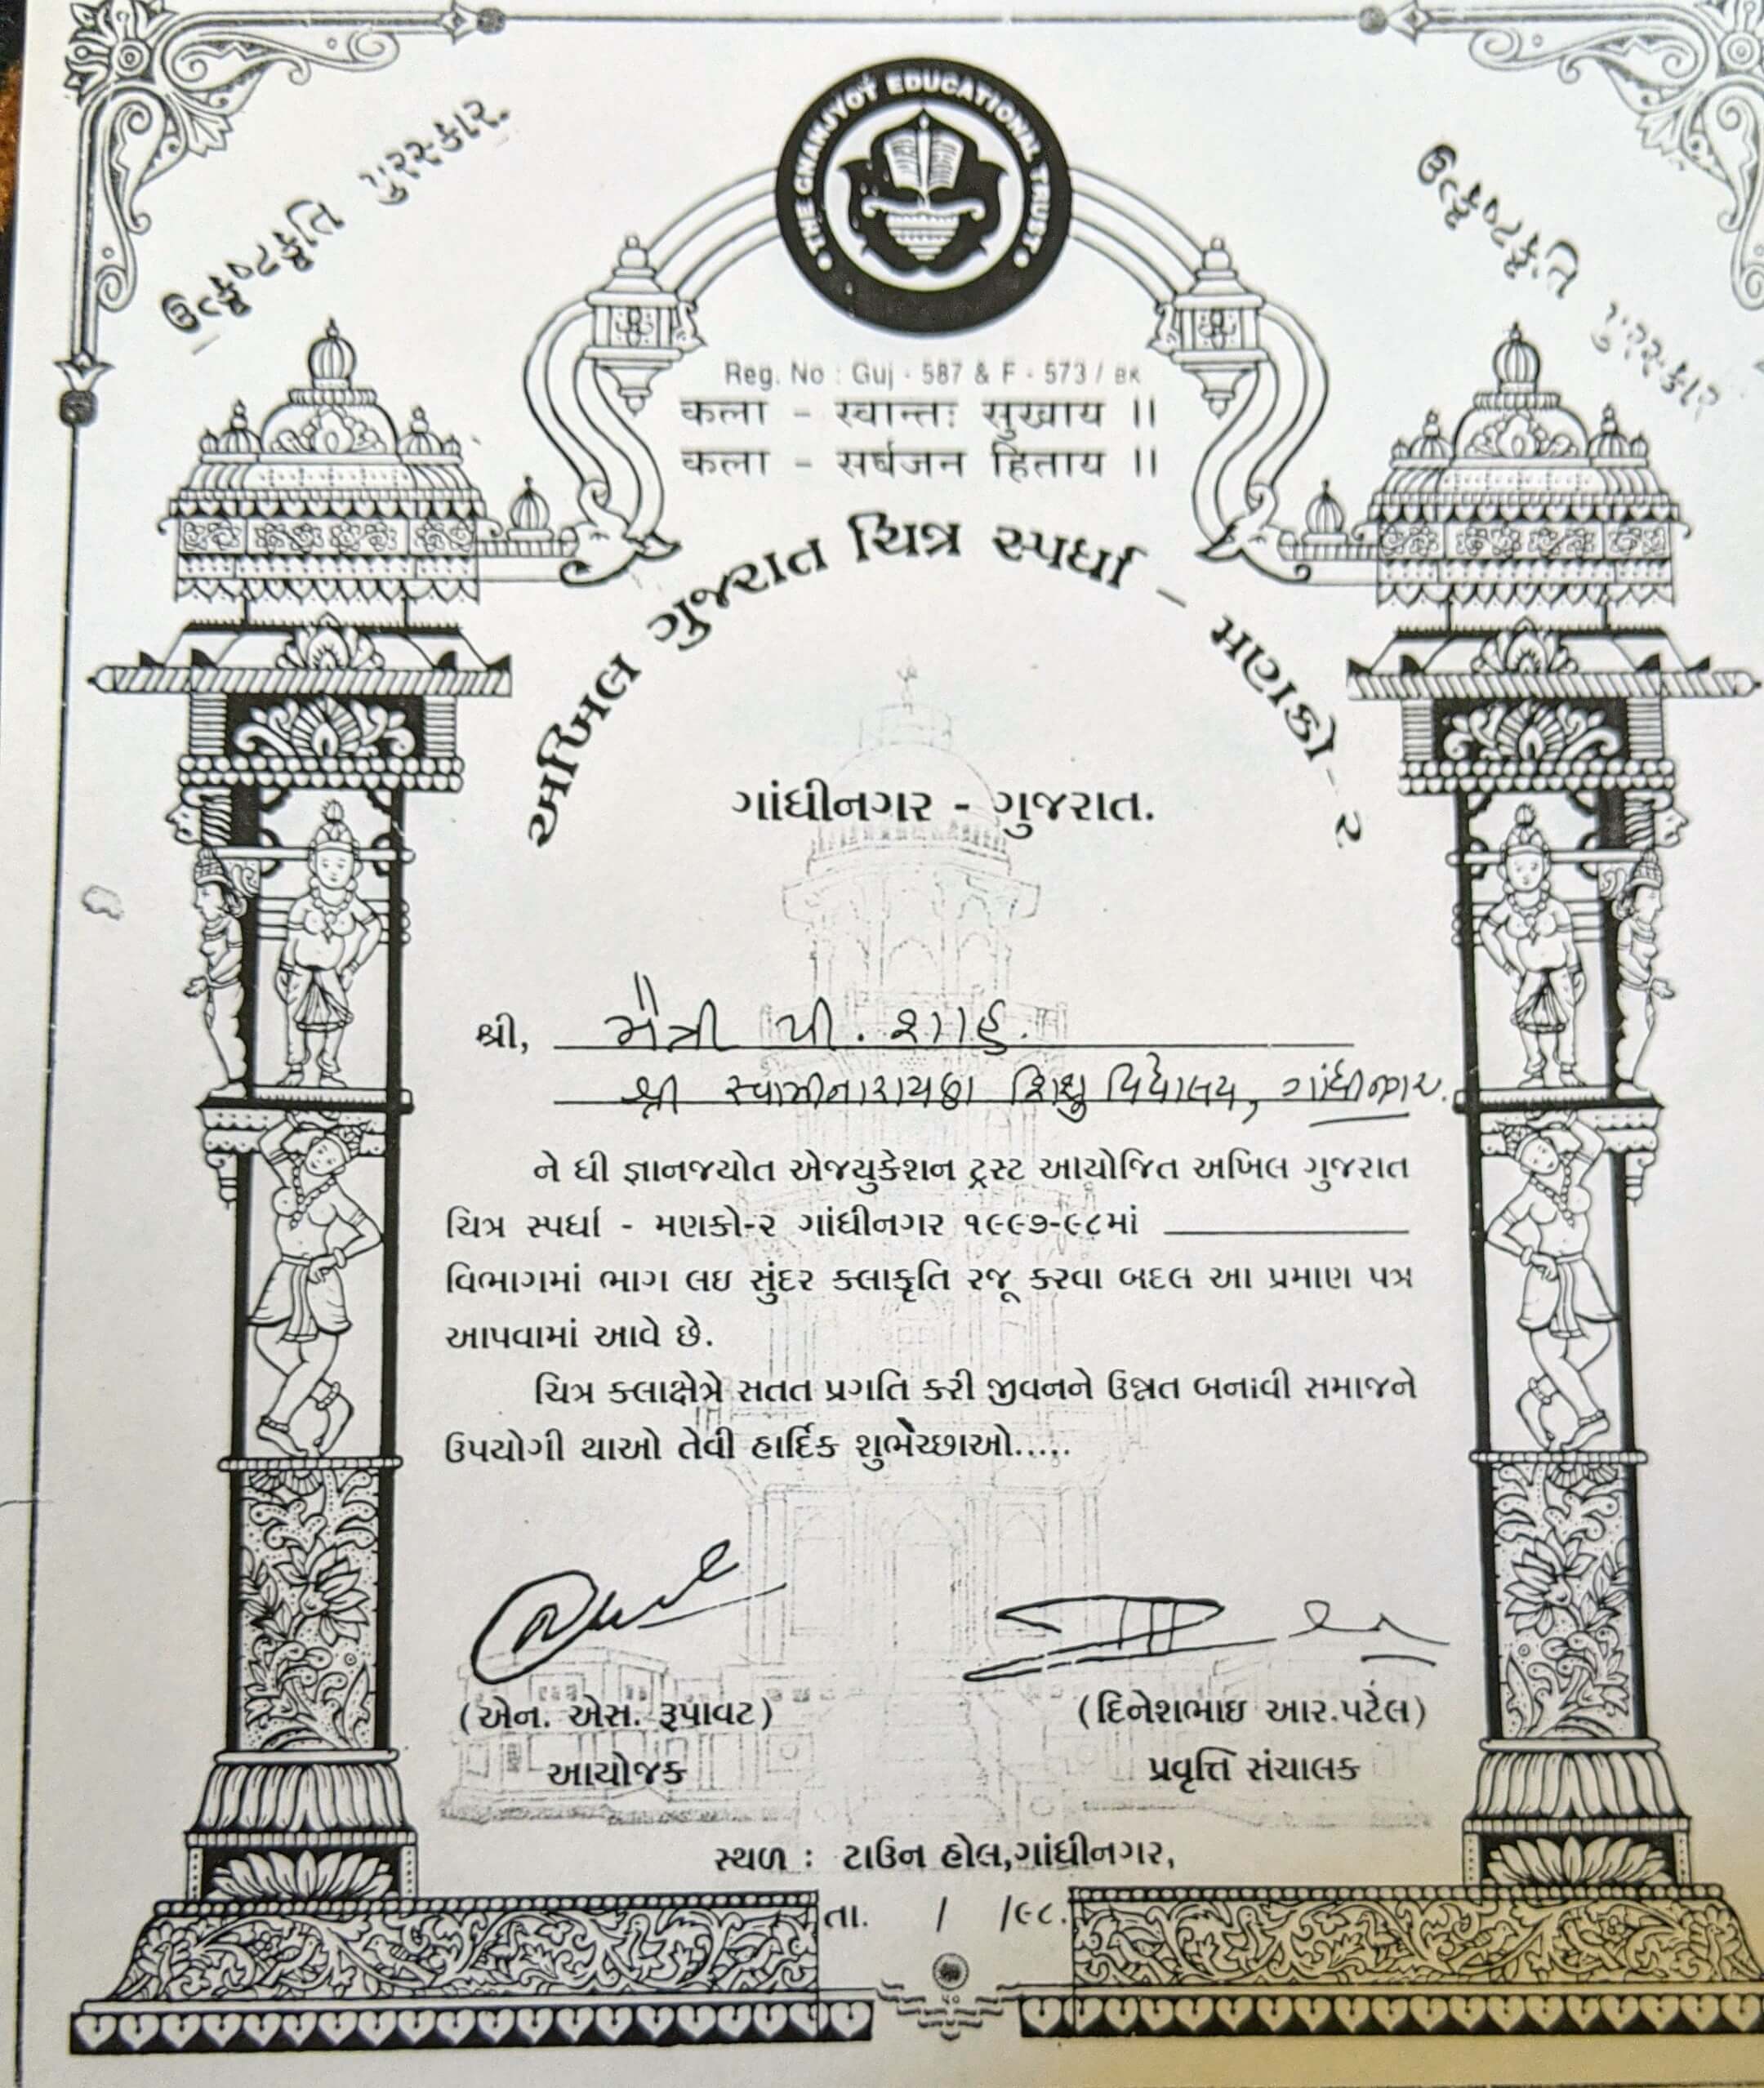 ઉત્કૃષ્ટકૃતિ પુરસ્કાર.
ઉત્કૃષ્ટકૃતિ પુરસ્કાર
THE GNANJYOT EDUCATIONAL TRUST
Reg. No : Guj - 587 & F - 573 / BK
कला - स्वान्तः सुखाय ॥
कला - सर्वजन हिताय ॥
અખિલ ગુજરાત ચિત્ર સ્પર્ધા - મણકો - ૨
ગાંધીનગર - ગુજરાત.
શ્રી, મૈત્રી પી. શાહ.
શ્રી સ્વામીનારાયણ શિશુ વિદ્યાલય, ગાંધીનગર.
ને ધી જ્ઞાનજયોત એજયુકેશન ટ્રસ્ટ આયોજિત અખિલ ગુજરાત
ચિત્ર સ્પર્ધા - મણકો-૨ ગાંધીનગર ૧૯૯૭-૯૮માં
વિભાગમાં ભાગ લઇ સુંદર કલાકૃતિ રજૂ કરવા બદલ આ પ્રમાણ પત્ર
આપવામાં આવે છે.
ચિત્ર કલાક્ષેત્રે સતત પ્રગતિ કરી જીવનને ઉન્નત બનાવી સમાજને
ઉપયોગી થાઓ તેવી હાર્દિક શુભેચ્છાઓ.....
(એન. એસ. રૂપાવટ) (દિનેશભાઇ આર.પટેલ)
આયોજક પ્રવૃત્તિ સંચાલક
સ્થળ : ટાઉન હોલ,ગાંધીનગર,
તા. / /૯૮.